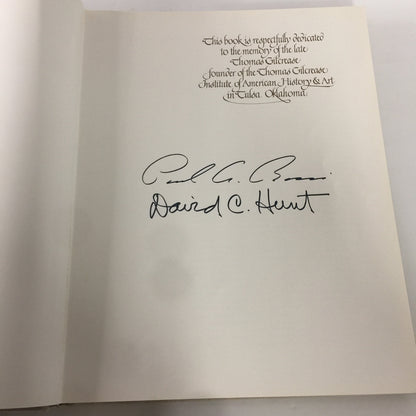 This book is respectfully dedicated
to the memory of the late
Thomas Gilcrease
founder of the Thomas Gilcrease
Institute of American History & Art
in Tulsa Oklahoma
Paul A.
David C. Hunt